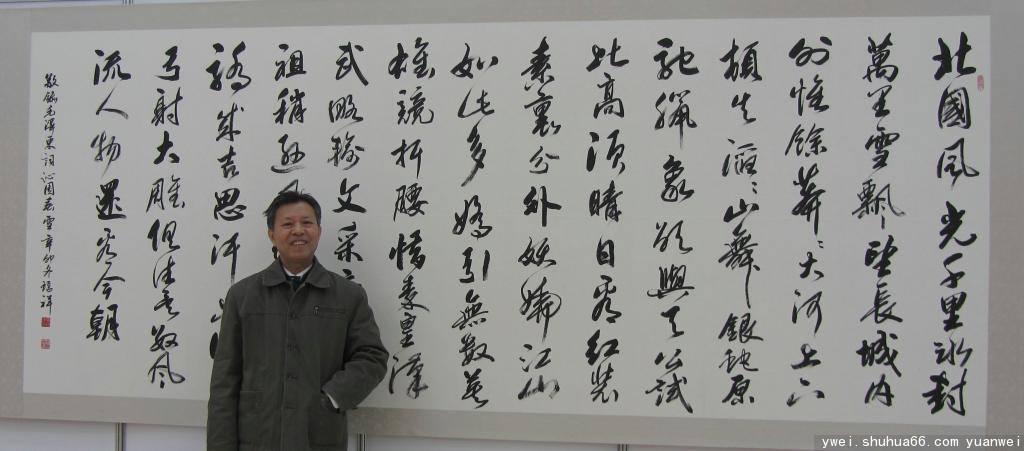 北國風光千里冰封
萬里雪飄望長城內
外惟餘莽々大河上下
頓失滔々山舞銀蛇原
馳臘象欲與天公試
比高須晴日看紅裝
素裹分外妖嬈江山
如此多嬌引無數英
雄競折腰惜秦皇漢
武略輸文采
祖稍遜
驕成吉思汗
弓射大雕俱往矣數風
流人物還看今朝
敬錄毛澤東詞沁園春雪辛卯冬祥
ywei.shuhua66.com yuanwei